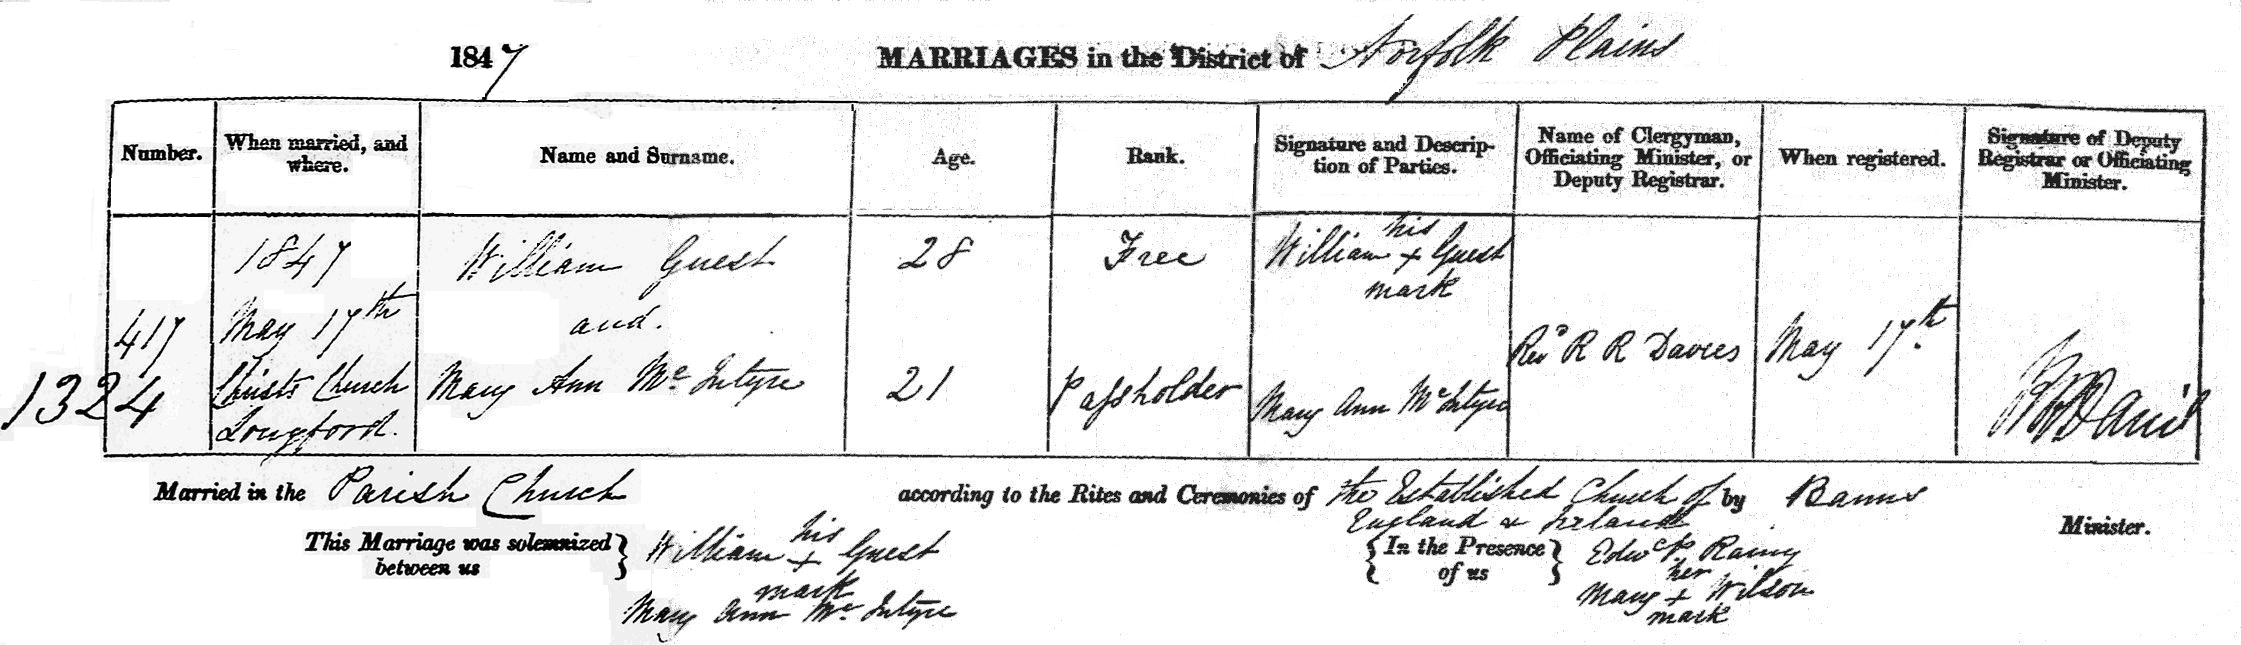 1847 MARRIAGES in the District of Norfolk Plains
Number. When married, and where. Name and Surname. Age. Rank. Signature and Description of Parties. Name of Clergyman, Officiating Minister, or Deputy Registrar. When registered. Signature of Deputy Registrar or Officiating Minister.
1847 William Guest 28 Free William his + Guest mark
417 May 17th and. Revd R R Davies May 17th.
1324 Christ's Church Longford. Mary Ann McIntyre 21 Passholder Mary Ann McIntyre RRDavies
Married in the Parish Church according to the Rites and Ceremonies of the Established Church of England & Ireland by Banns
Minister.
This Marriage was solemnized between us } William his + Guest mark
Mary Ann McIntyre
{ In the Presence of us } Edwd P. Rainy
Mary her + Wilson mark